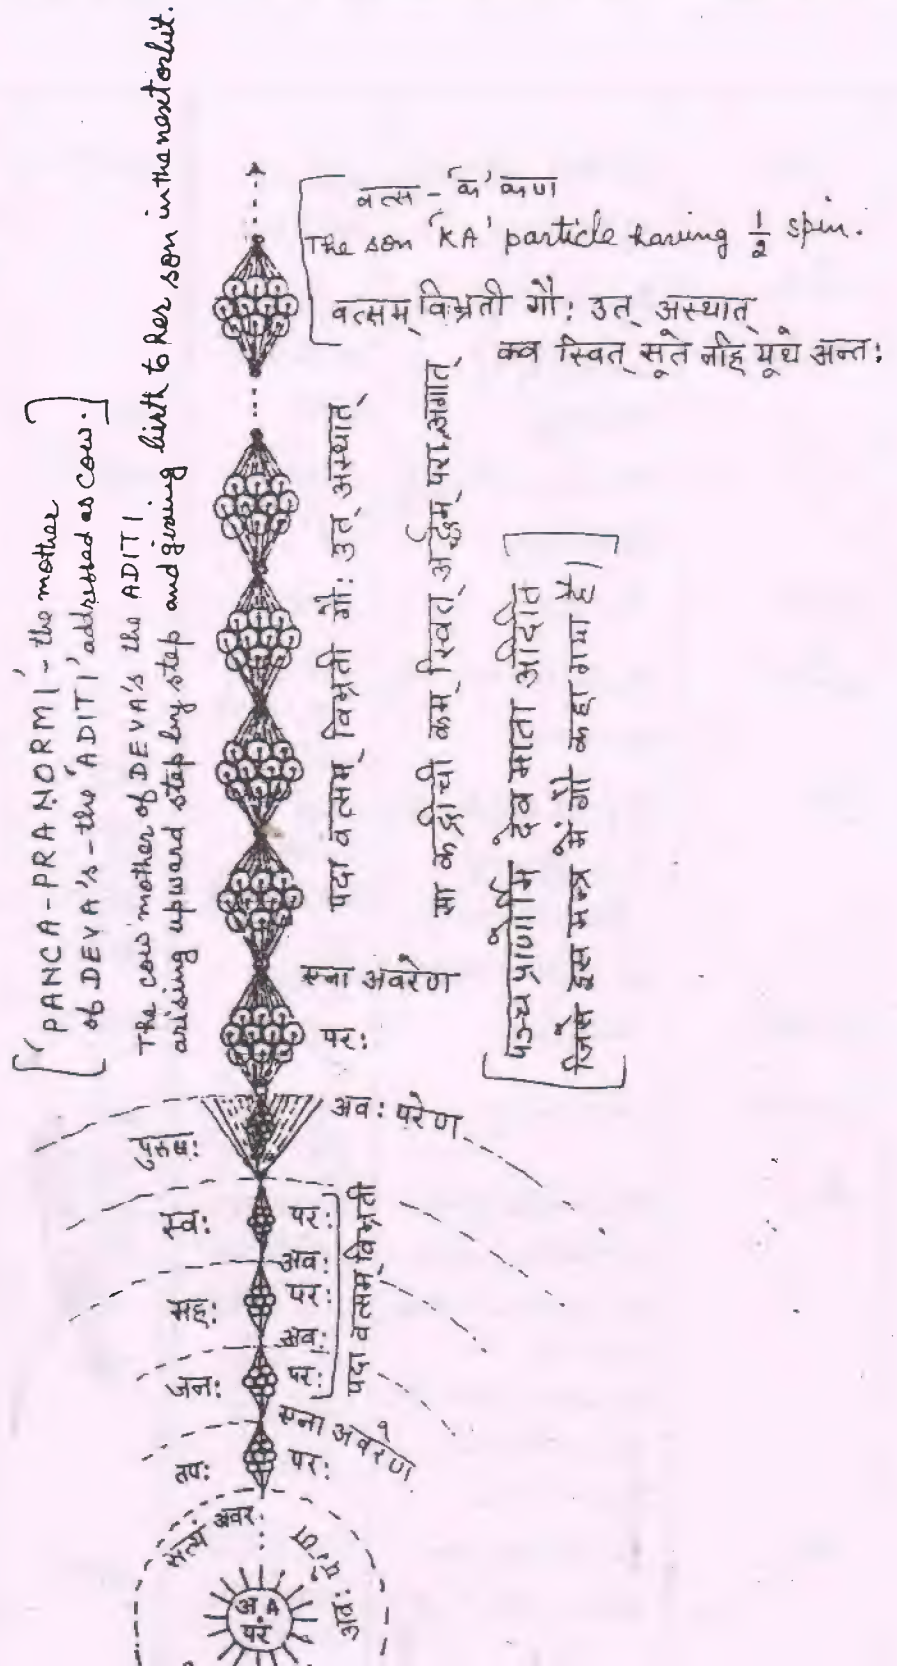 ['PANCA-PRANORMI' - the mother
of DEVA's - the 'ADITI' addressed as cow.]
The cow mother of DEVA's the ADITI
arising upward step by step and giving birth to her son in the next orbit.
वत्स - 'क' कण
The son 'KA' particle having 1/2 spin.
वत्सम् विभ्रती गौ: उत् अस्थात्
क्व स्वित् सूते नहि यूथे अन्त:
पदा वत्सम् विभ्रती गौ: उत् अस्थात्
सा कद्रीची कम् स्वित् अर्द्धम् परा अगात्
[पञ्च प्राणोर्मि देव माता अदिति
जिसे इस मन्त्र में गौ कहा गया है]
एना अवरेण
पर:
अव: परेण
पुरुष:
स्व:
पर:
अव:
मह:
पर:
अव:
जन:
पर:
पदा वत्सम् विभ्रती
एना अवरेण
तप:
पर:
सत्यं अवर:
अव:
अ A
परं